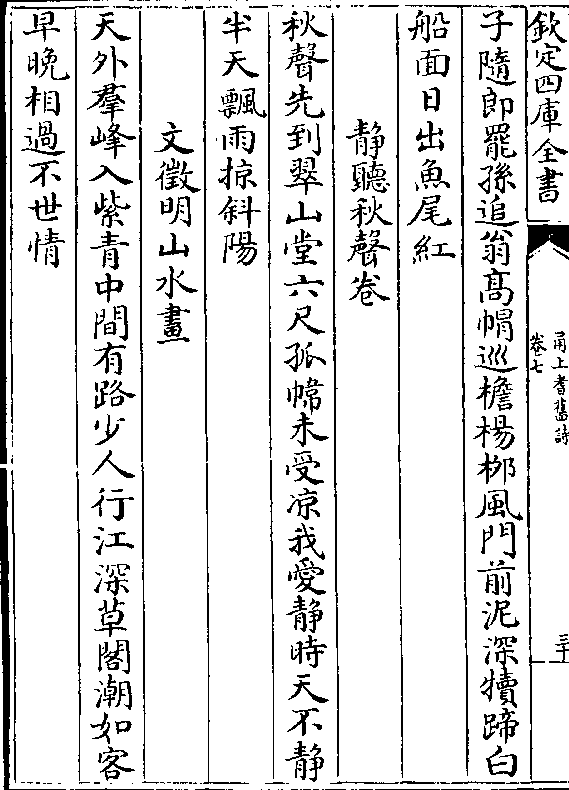 欽定四庫全書
甬上耆舊詩
卷七
三十一
子隨郎罷孫追翁高㡌巡檐楊栁風門前泥深犢蹄白
船面日出魚尾紅
静聽秋聲卷
秋聲先到翠山堂六尺孤幃未受凉我愛静時天不静
半天飄雨掠斜陽
文徵明山水畫
天外羣峰入紫青中間有路少人行江深草閣潮如客
早晚相過不世情